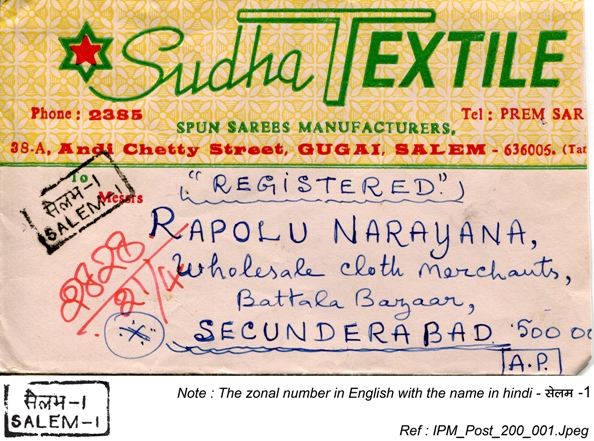 Sudha TEXTILE
Phone : 2385
Tel : PREM SAR
SPUN SAREES MANUFACTURERS,
38-A, Andi Chetty Street, GUGAI, SALEM - 636005. (Tar
To
Messrs
सेलम-1
SALEM-1
"REGISTERED"
RAPOLU NARAYANA,
Wholesale cloth Merchants,
Battala Bazaar,
SECUNDERABAD 500 00
A.P.
2828
21/4
सेलम-1
SALEM-1
Note : The zonal number in English with the name in hindi - सेलम -1
Ref : IPM_Post_200_001.Jpeg